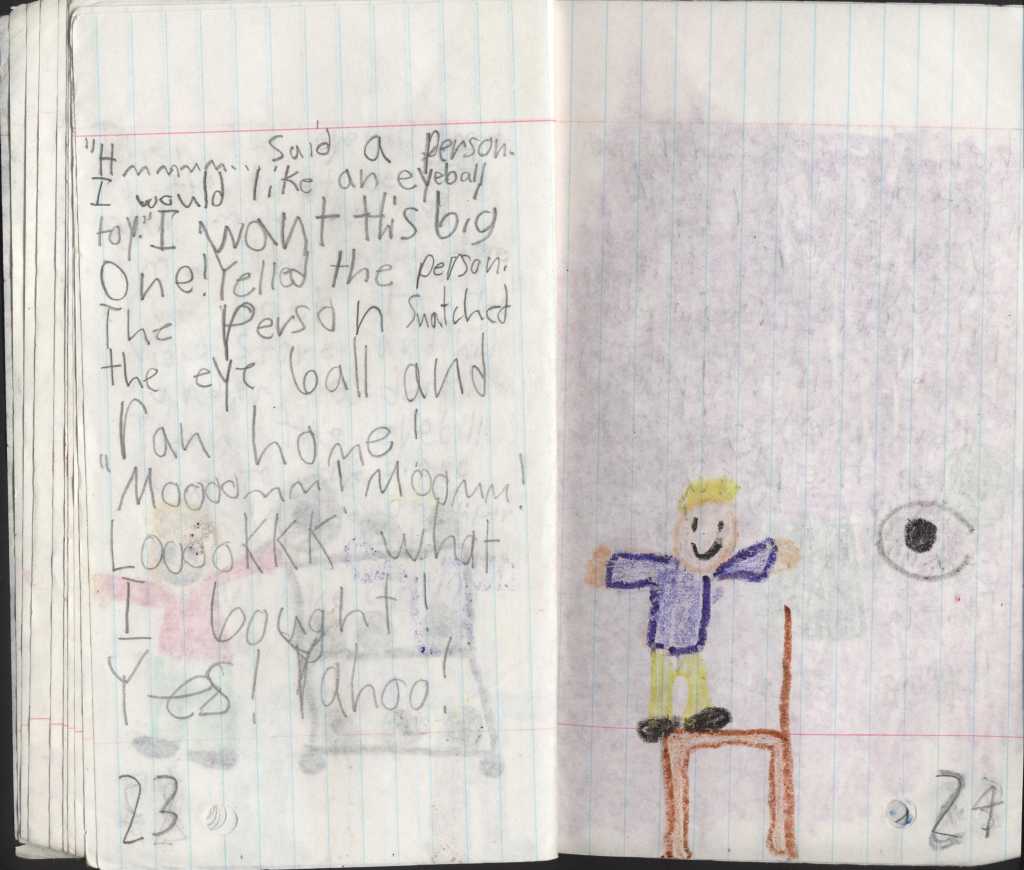 "Hmmmm... Said a person.
I would like an eyeball
toy." I want this big
One! Yelled the person.
The Person Snatched
the eye ball and
ran home!
"Moooomm! Moomm!
LooooKKK what
I bought!
Yes! Yahoo!
23
24